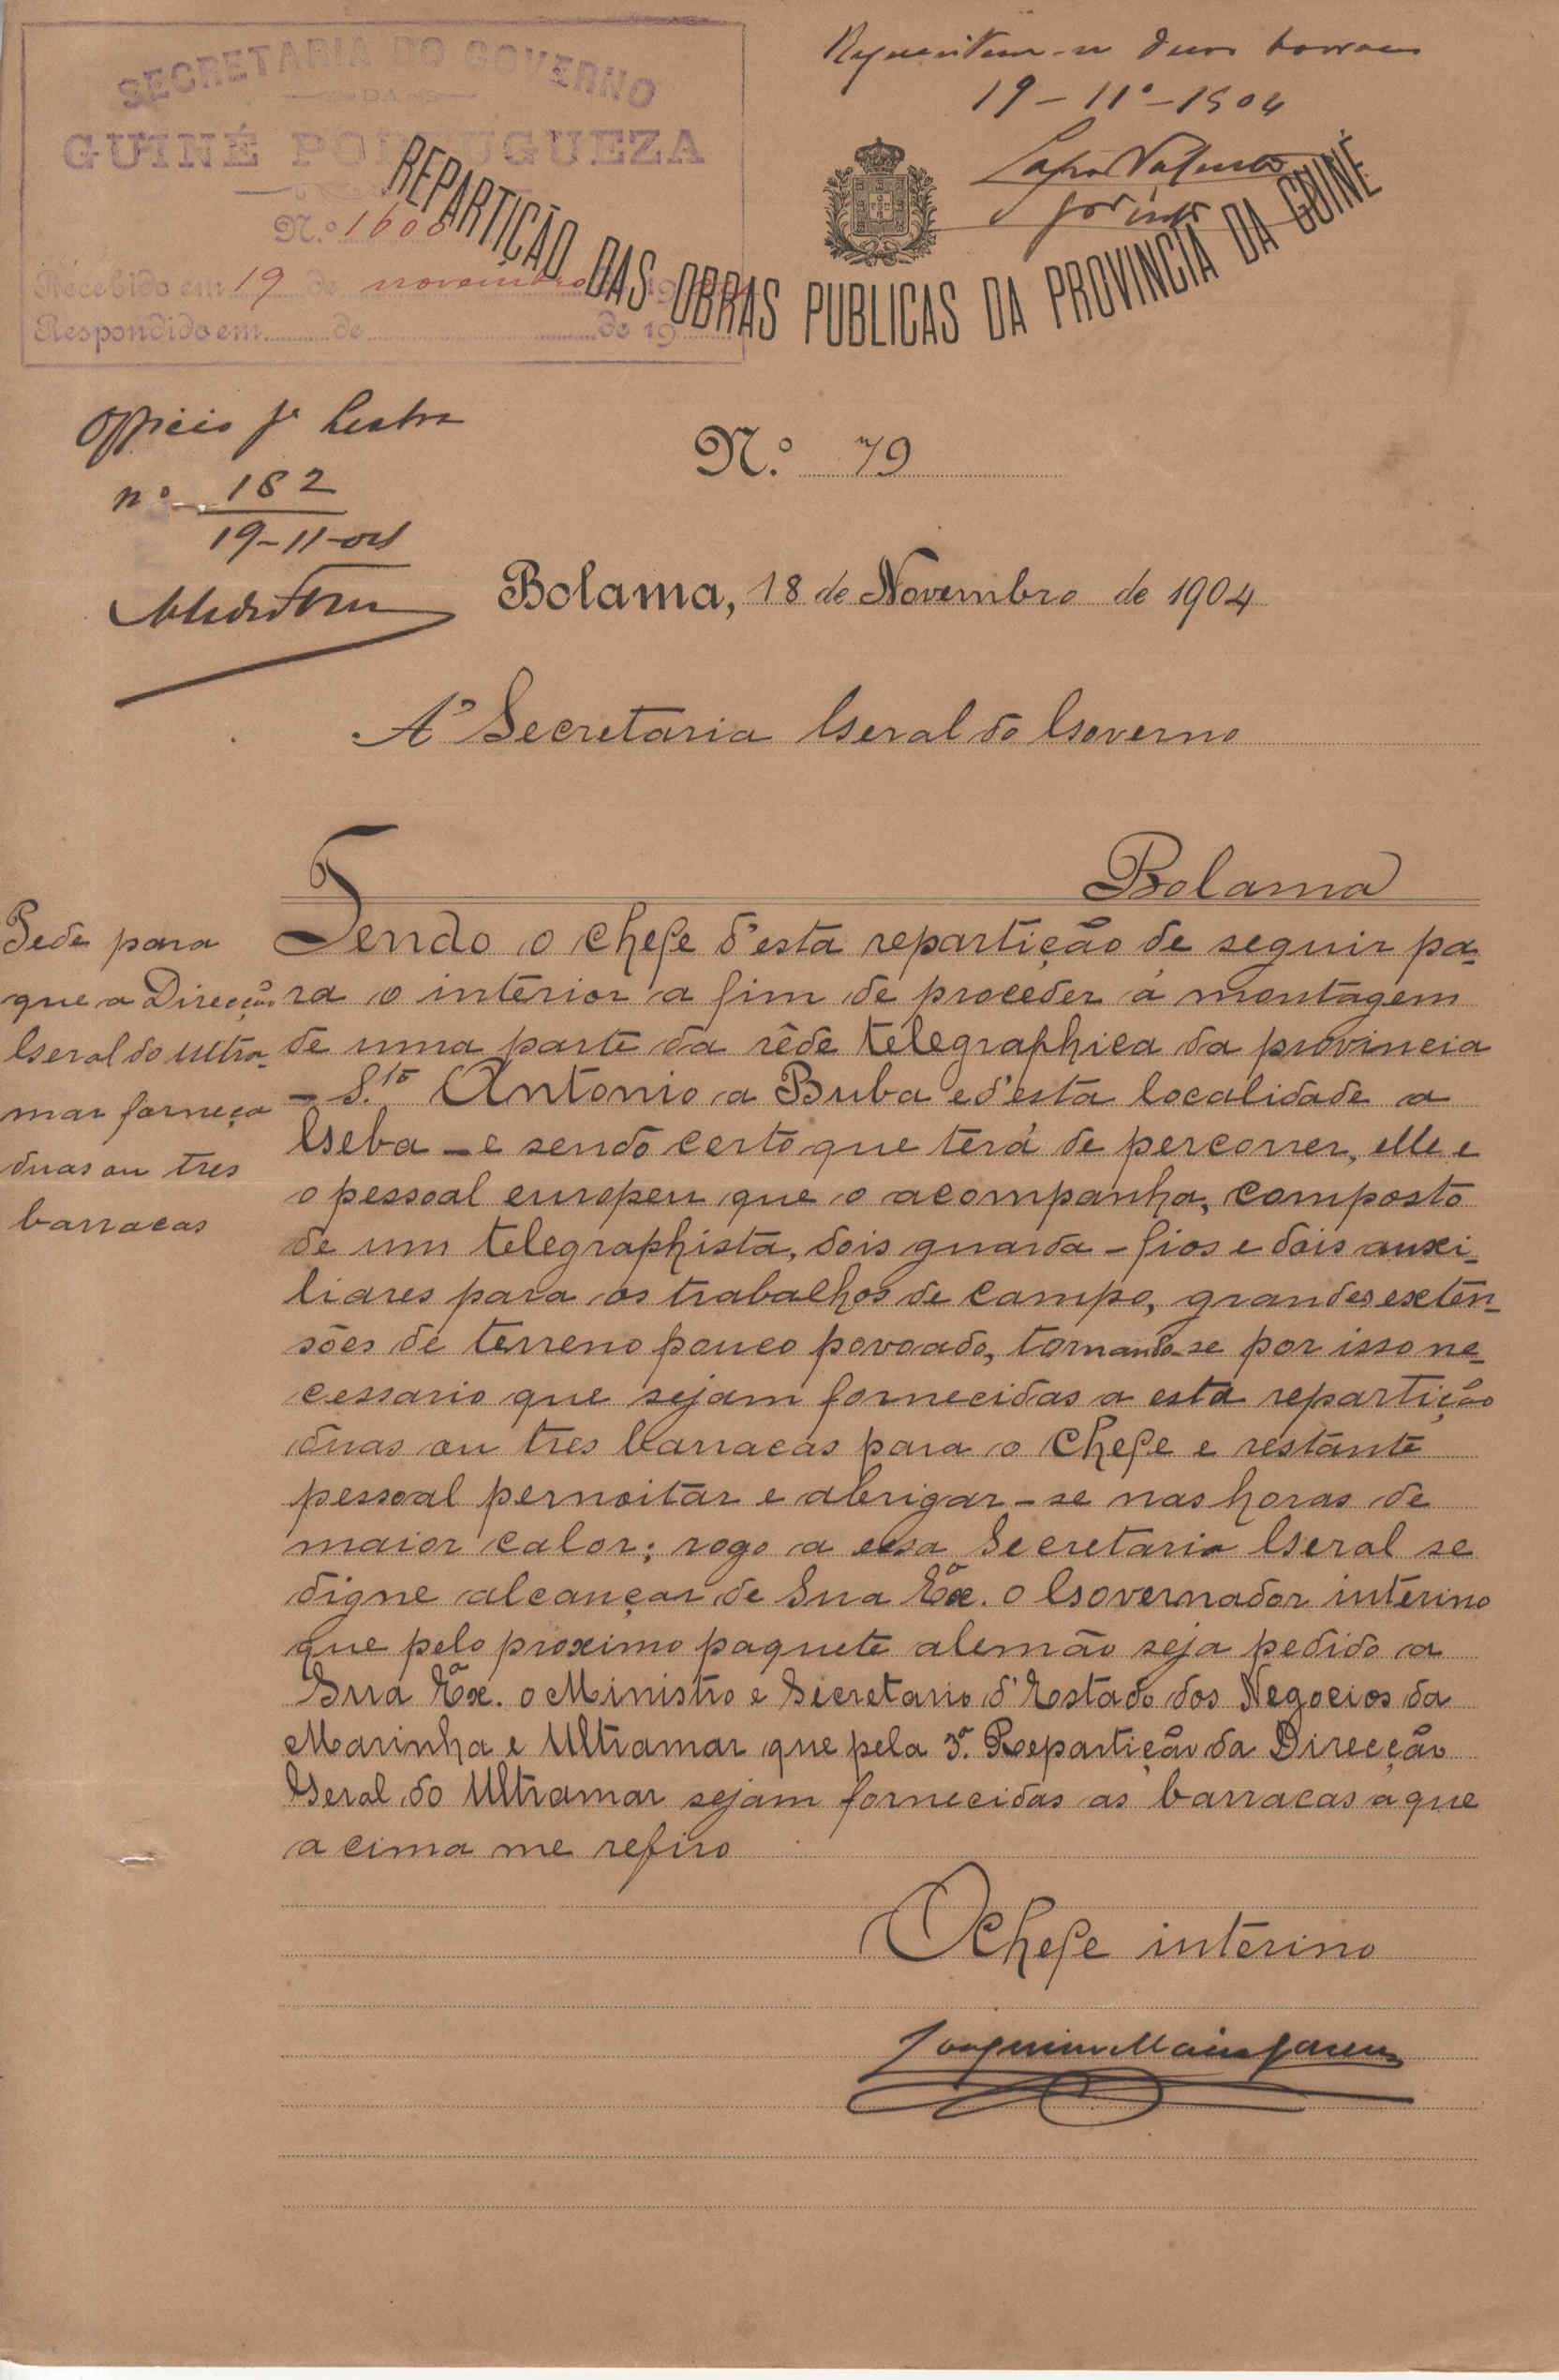 SECRETARIA DO GOVERNO
DA
GUINÉ PORTUGUEZA
N.º 1600
Recebido em 19 de novembro de 1904
Respondido em de de 19
duas
19-11º-1904
REPARTIÇÃO DAS OBRAS PUBLICAS DA PROVINCIA DA GUINÉ
Officio pª Lisboa
nº 182
19-11-04
N.º 79
Bolama, 18 de Novembro de 1904
Á Secretaria Geral do Governo
Bolama
Pede para
que a Direcção
Geral do Ultra-
mar forneça
duas ou tres
barracas
Tendo o chefe d'esta repartição de seguir pa-
ra o interior a fim de proceder á montagem
de uma parte da rêde telegraphica da provincia
- S.to Antonio a Buba e d'esta localidade a
Geba - e sendo certo que terá de percorrer, elle e
o pessoal europeu que o acompanha, composto
de um telegraphista, dois guarda-fios e dois auxi-
liares para os trabalhos de campo, grandes exten-
sões de terreno pouco povoado, tornando-se por isso ne-
cessario que sejam fornecidas a esta repartição
duas ou tres barracas para o chefe e restante
pessoal pernoitar e abrigar-se nas horas de
maior calor; rogo a essa Secretaria Geral se
digne alcançar de Sua Exª. o Governador interino
que pelo proximo paquete alemão seja pedido a
Sua Exª. o Ministro e Secretario d'Estado dos Negocios da
Marinha e Ultramar que pela 3ª. Repartição da Direcção
Geral do Ultramar sejam fornecidas as barracas a que
acima me refiro
O chefe interino
Joaquim